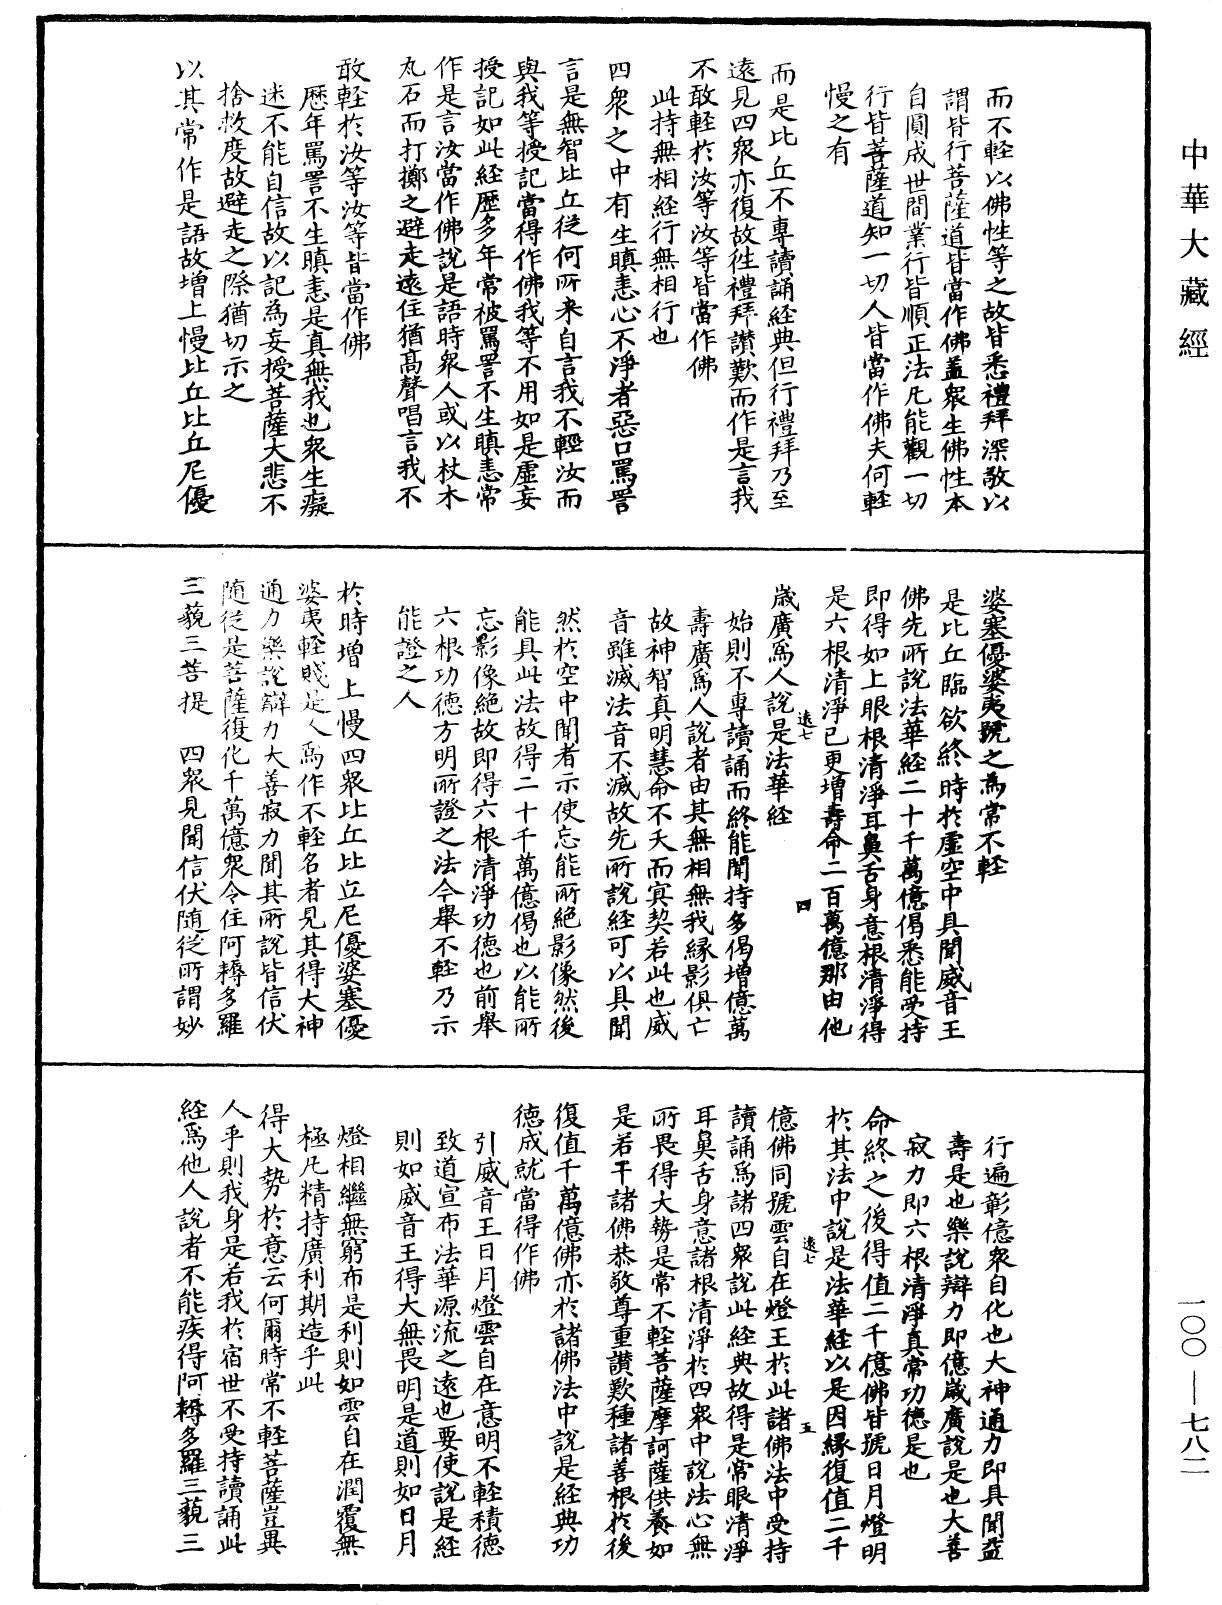 中華大藏經
而不輕以佛性等之故皆悉禮拜深敬以
謂皆行菩薩道皆當作佛蓋衆生佛性本
自圓成世間業行皆順正法凡能觀一切
行皆菩薩道知一切人皆當作佛夫何輕
慢之有
而是比丘不專讀誦經典但行禮拜乃至
遠見四衆亦復故往禮拜讃歎而作是言我
不敢輕於汝等汝等皆當作佛
此持無相經行無相行也
四衆之中有生瞋恚心不淨者惡口罵詈
言是無智比丘從何所来自言我不輕汝而
與我等授記當得作佛我等不用如是虛妄
授記如此經歷多年常被罵詈不生瞋恚常
作是言汝當作佛說是語時衆人或以杖木
丸石而打擲之避走遠住猶高聲唱言我不
敢輕於汝等汝等皆當作佛
歷年罵詈不生瞋恚是真無我也衆生癡
迷不能自信故以記為妄授菩薩大悲不
捨救度故避走之際猶切示之
以其常作是語故增上慢比丘比丘尼優
婆塞優婆夷號之為常不輕
是比丘臨欲終時於虛空中具聞威音王
佛先所說法華經二十千萬億偈悉能受持
即得如上眼根清淨耳鼻舌身意根清淨得
是六根清淨已更增壽命二百萬億那由他
遠七 四
歲廣為人說是法華經
始則不專讀誦而終能聞持多偈增億萬
壽廣為人說者由其無相無我緣影俱亡
故神智真明慧命不夭而冥契若此也威
音雖滅法音不滅故先所說經可以具聞
然於空中聞者示使忘能所絕影像然後
能具此法故得二十千萬億偈也以能所
忘影像絕故即得六根清淨功德也前舉
六根功德方明所證之法今舉不輕乃示
能證之人
於時增上慢四衆比丘比丘尼優婆塞優
婆夷輕賤是人為作不輕名者見其得大神
通力樂說辯力大善寂力聞其所說皆信伏
隨從是菩薩復化千萬億衆令住阿耨多羅
三藐三菩提　四衆見聞信伏隨從所謂妙
行遍彰億衆自化也大神通力即具聞益
壽是也樂說辯力即億歲廣說是也大善
寂力即六根清淨真常功德是也
命終之後得值二千億佛皆號日月燈明
於其法中說是法華經以是因緣復值二千
遠七 五
億佛同號雲自在燈王於此諸佛法中受持
讀誦為諸四衆說此經典故得是常眼清淨
耳鼻舌身意諸根清淨於四衆中說法心無
所畏得大勢是常不輕菩薩摩訶薩供養如
是若干諸佛恭敬尊重讃歎種諸善根於後
復值千萬億佛亦於諸佛法中說是經典功
德成就當得作佛
引威音王日月燈雲自在意明不輕積德
致道宣布法華源流之遠也要使說是經
則如威音王得大無畏明是道則如日月
燈相繼無窮布是利則如雲自在潤覆無
極凡精持廣利期造乎此
得大勢於意云何爾時常不輕菩薩豈異
人乎則我身是若我於宿世不受持讀誦此
經為他人說者不能疾得阿耨多羅三藐三
一〇〇—七八二